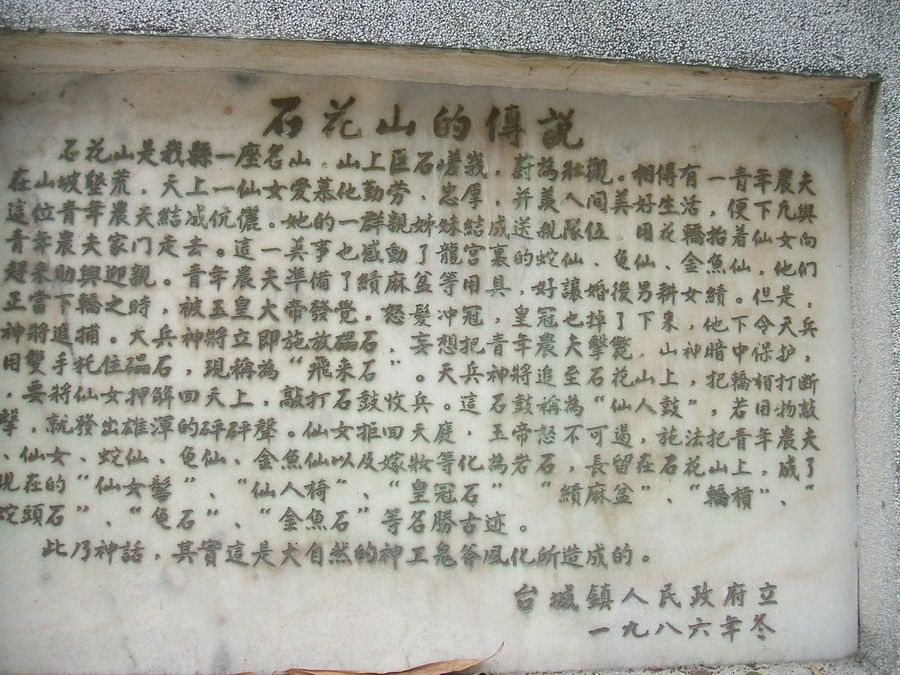 石花山的傳説
石花山是我縣一座名山。山上巨石嵯峩，蔚為壯觀。相得有一青年農夫
在山坡墾荒，天上一仙女愛慕他勤勞、忠厚，并羡人间美好生活，便下凡與
這位青年農夫結成伉儷。她的一群親姊妹結成送親隊伍，用花轎抬着仙女向
青年農夫家门走去。這一美事也感動了龍宫裏的蛇仙、龟仙、金魚仙，他們
趕来助興迎親。青年農夫準備了績麻盆等用具，好讓婚後男耕女績。但是，
正當下轎之時，被玉皇大帝發覺。怒髮冲冠，皇冠也掉了下来，他下令天兵
神將追捕。天兵神將立即施放磖石，妄想把青年農夫擊斃，山神暗中保护，
用雙手托住磖石，現稱為“飛来石”。天兵神將追至石花山上，把轎槓打断
，要將仙女押解回天上，敲打石鼓收兵。這石鼓稱為“仙人鼓”，若用物敲
擊，就發出雄渾的砰砰聲。仙女拒回天庭，玉帝怒不可遏，施法把青年農夫
、仙女、蛇仙、龟仙、金魚仙以及嫁妆等化為岩石，長留在石花山上，成了
現在的“仙女髻”、“仙人椅”、“皇冠石”“績麻盆”、“轎槓”、“
蛇頭石”、“龟石”、“金魚石”等名勝古迹。
此乃神話，其實這是大自然的神工鬼斧風化所造成的。
台城鎮人民政府立
一九八六年冬